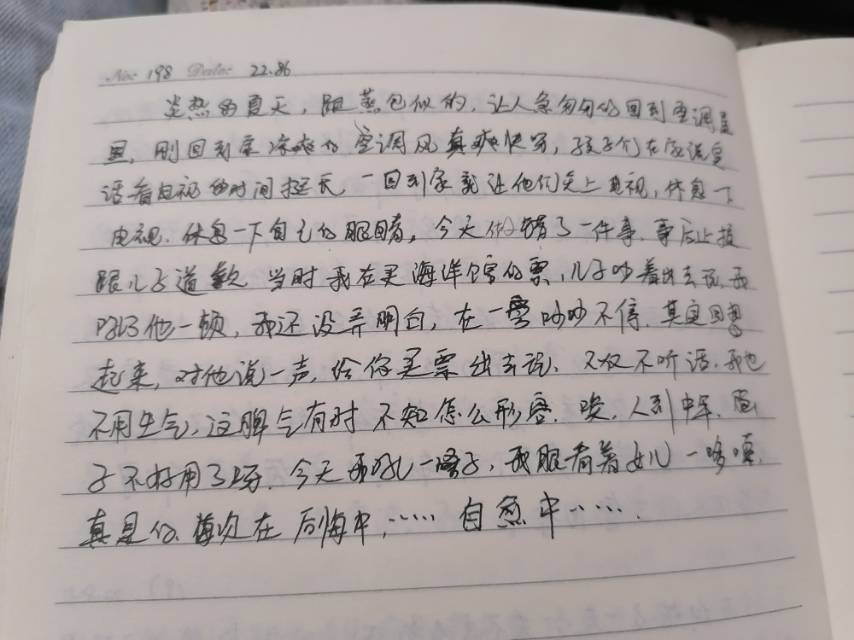 No: 198 Date: 22.8.6
炎热的夏天，跟蒸包似的，让人急匆匆的回到空调屋
里，刚回到家凉爽的空调风真爽快呀，孩子们在家
话看电视的时间挺长，一回到家就让他们关上电视，休息一下
电视．休息一下自己的眼睛。今天做错了一件事，事后止损
跟儿子道歉 当时我在买海洋馆的票，儿子吵着出去玩，我
吼了他一顿，我还没弄明白，在一旁吵吵不停．其实回想
起来，对他说一声，给你买票出去玩，又不听话，我也
不用生气，这脾气有时不知怎么形容．唉，人到中年，
子不好用了 今天我吼一嗓子，我眼看着女儿一哆嗦，
真是的．每次在后悔中，…… 自愈中……．